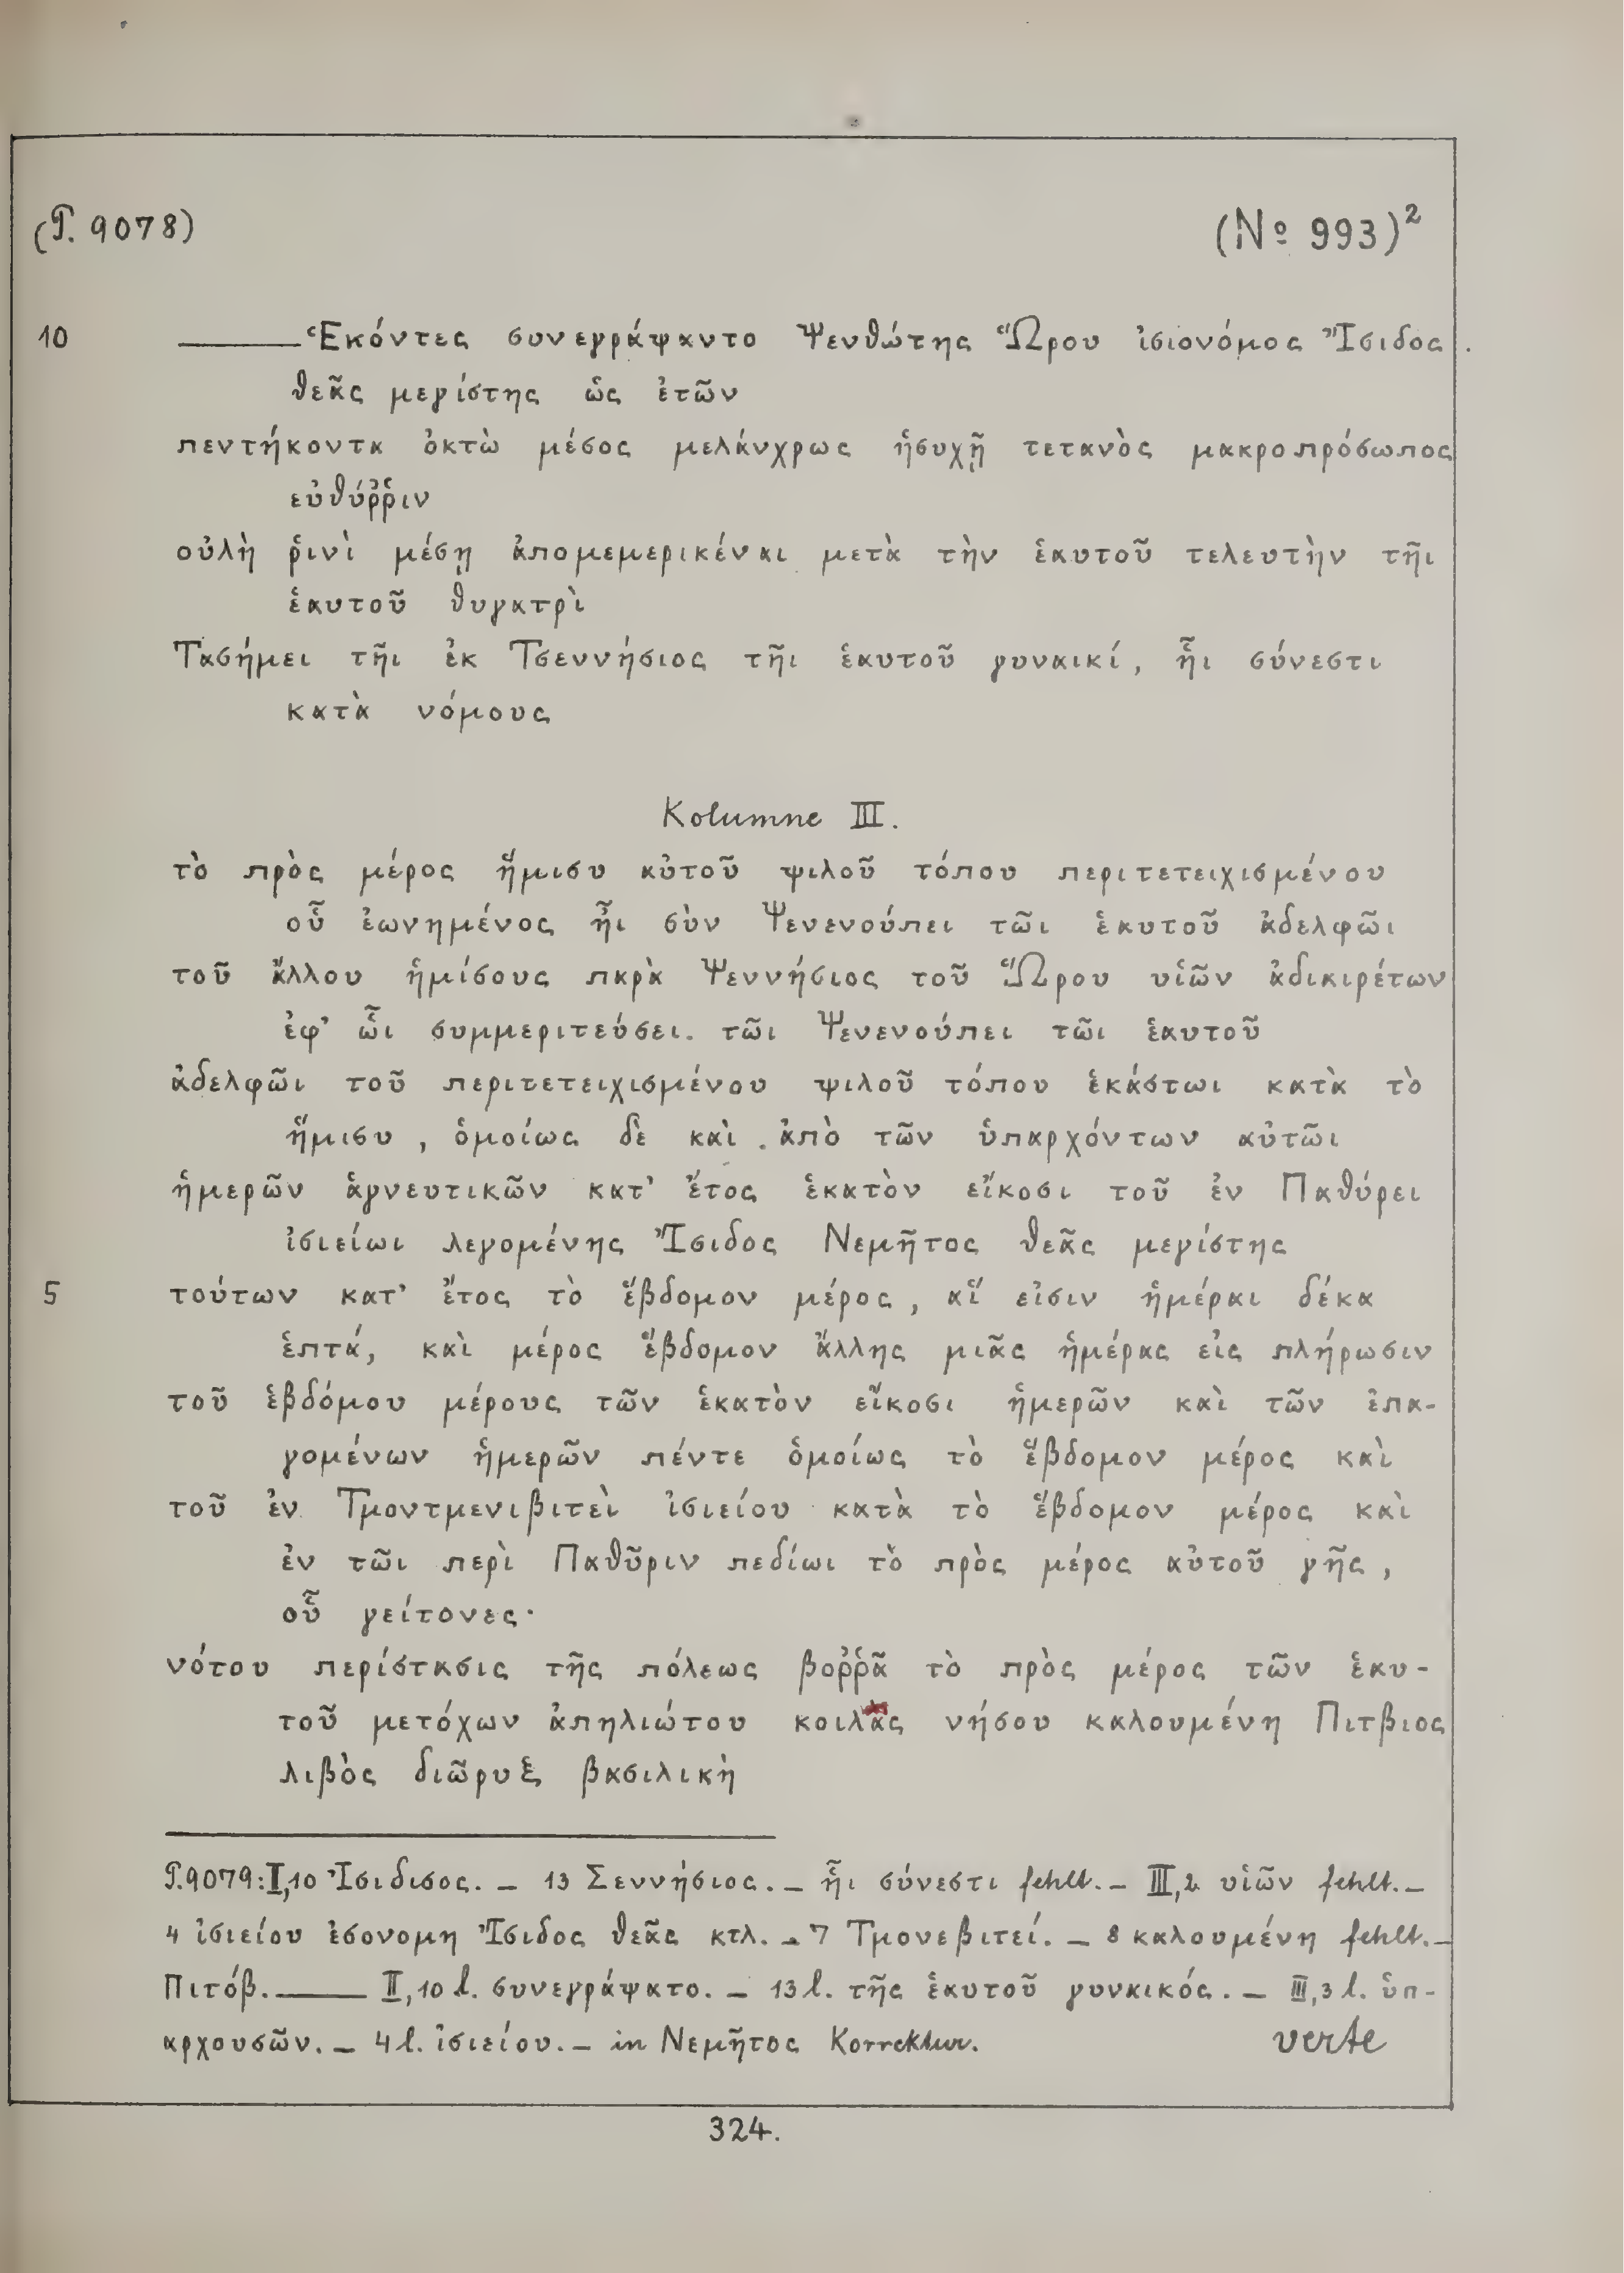 (P. 9078) (No 993)²
10 ——— Ἑκόντες συνεγράψαντο Ψενθώτης Ὥρου ἰσιονόμος Ἴσιδος
θεᾶς μεγίστης ὡς ἐτῶν
πεντήκοντα ὀκτὼ μέσος μελάνχρως ἡσυχῇ τετανὸς μακροπρόσωπος
εὐθύῤῥιν
οὐλὴ ῥινὶ μέσῃ ἀπομεμερικέναι μετὰ τὴν ἑαυτοῦ τελευτὴν τῆι
ἑαυτοῦ θυγατρὶ
Τασήμει τῆι ἐκ Τσεννήσιος τῆι ἑαυτοῦ γυναικί, ἧι σύνεστι
κατὰ νόμους
Kolumne III.
τὸ πρὸς μέρος ἥμισυ αὐτοῦ ψιλοῦ τόπου περιτετειχισμένου
οὗ ἐωνημένος ἦι σὺν Ψενενούπει τῶι ἑαυτοῦ ἀδελφῶι
τοῦ ἄλλου ἡμίσους παρὰ Ψεννήσιος τοῦ Ὥρου υἱῶν ἀδιαιρέτων
ἐφ' ὧι συμμεριτεύσει. τῶι Ψενενούπει τῶι ἑαυτοῦ
ἀδελφῶι τοῦ περιτετειχισμένου ψιλοῦ τόπου ἑκάστωι κατὰ τὸ
ἥμισυ, ὁμοίως δὲ καὶ ἀπὸ τῶν ὑπαρχόντων αὐτῶι
ἡμερῶν ἁγνευτικῶν κατ' ἔτος ἑκατὸν εἴκοσι τοῦ ἐν Παθύρει
ἰσιείωι λεγομένης Ἴσιδος Νεμῆτος θεᾶς μεγίστης
5 τούτων κατ' ἔτος τὸ ἕβδομον μέρος, αἵ εἰσιν ἡμέραι δέκα
ἑπτά, καὶ μέρος ἕβδομον ἄλλης μιᾶς ἡμέρας εἰς πλήρωσιν
τοῦ ἑβδόμου μέρους τῶν ἑκατὸν εἴκοσι ἡμερῶν καὶ τῶν ἐπα-
γομένων ἡμερῶν πέντε ὁμοίως τὸ ἕβδομον μέρος καὶ
τοῦ ἐν Τμοντμενιβιτεὶ ἰσιείου κατὰ τὸ ἕβδομον μέρος καὶ
ἐν τῶι περὶ Παθῦριν πεδίωι τὸ πρὸς μέρος αὐτοῦ γῆς,
οὗ γείτονες·
νότου περίστασις τῆς πόλεως βοῤῥᾶ τὸ πρὸς μέρος τῶν ἑαυ-
τοῦ μετόχων ἀπηλιώτου κοιλὰς νήσου καλουμένη Πιτβιος
λιβὸς διῶρυξ βασιλικὴ
P.9079: II,10 Ἰσιδισος. – 13 Σεννήσιος. – ἧι σύνεστι fehlt. – III,2 υἱῶν fehlt. –
4 ἰσιείου ἐσονομη Ἴσιδος θεᾶς κτλ. – 7 Τμονεβιτεί. – 8 καλουμένη fehlt. –
Πιτόβ. ——— II,10 l. συνεγράψατο. – 13 l. τῆς ἑαυτοῦ γυναικός. – III,3 l. ὑπ-
αρχουσῶν. – 4 l. ἰσιείου. – in Νεμῆτος Korrektur. verte
324.